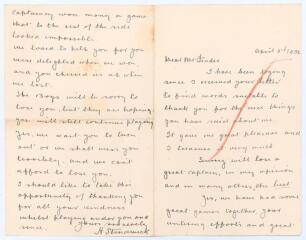 April 3rd 1932
Dear Mr Fender
I have been trying
since I received your letter
to find words suitable to
thank you for the nice things
you have said about me.
It gave me great pleasure and
I treasure very much
Surrey will lose a
great captain, in my opinion
and in many others, the best
Yes, we have had some
great games together your
untiring efforts and great
captaincy won many a game
that to the rest of the side
looked impossible.
We loved to help you for you
were delighted when we won
and you cheered us all when
we lost.
The Boys will be sorry to
lose you, but they are hoping
you will still continue playing
Yes, we want you to turn
out or we shall miss you
terribly, and we can't
afford to lose you.
I should like to take this
opportunity of thanking you
for all your kindness
whilst playing under you and
since. Yours sincerely
H Strudwick